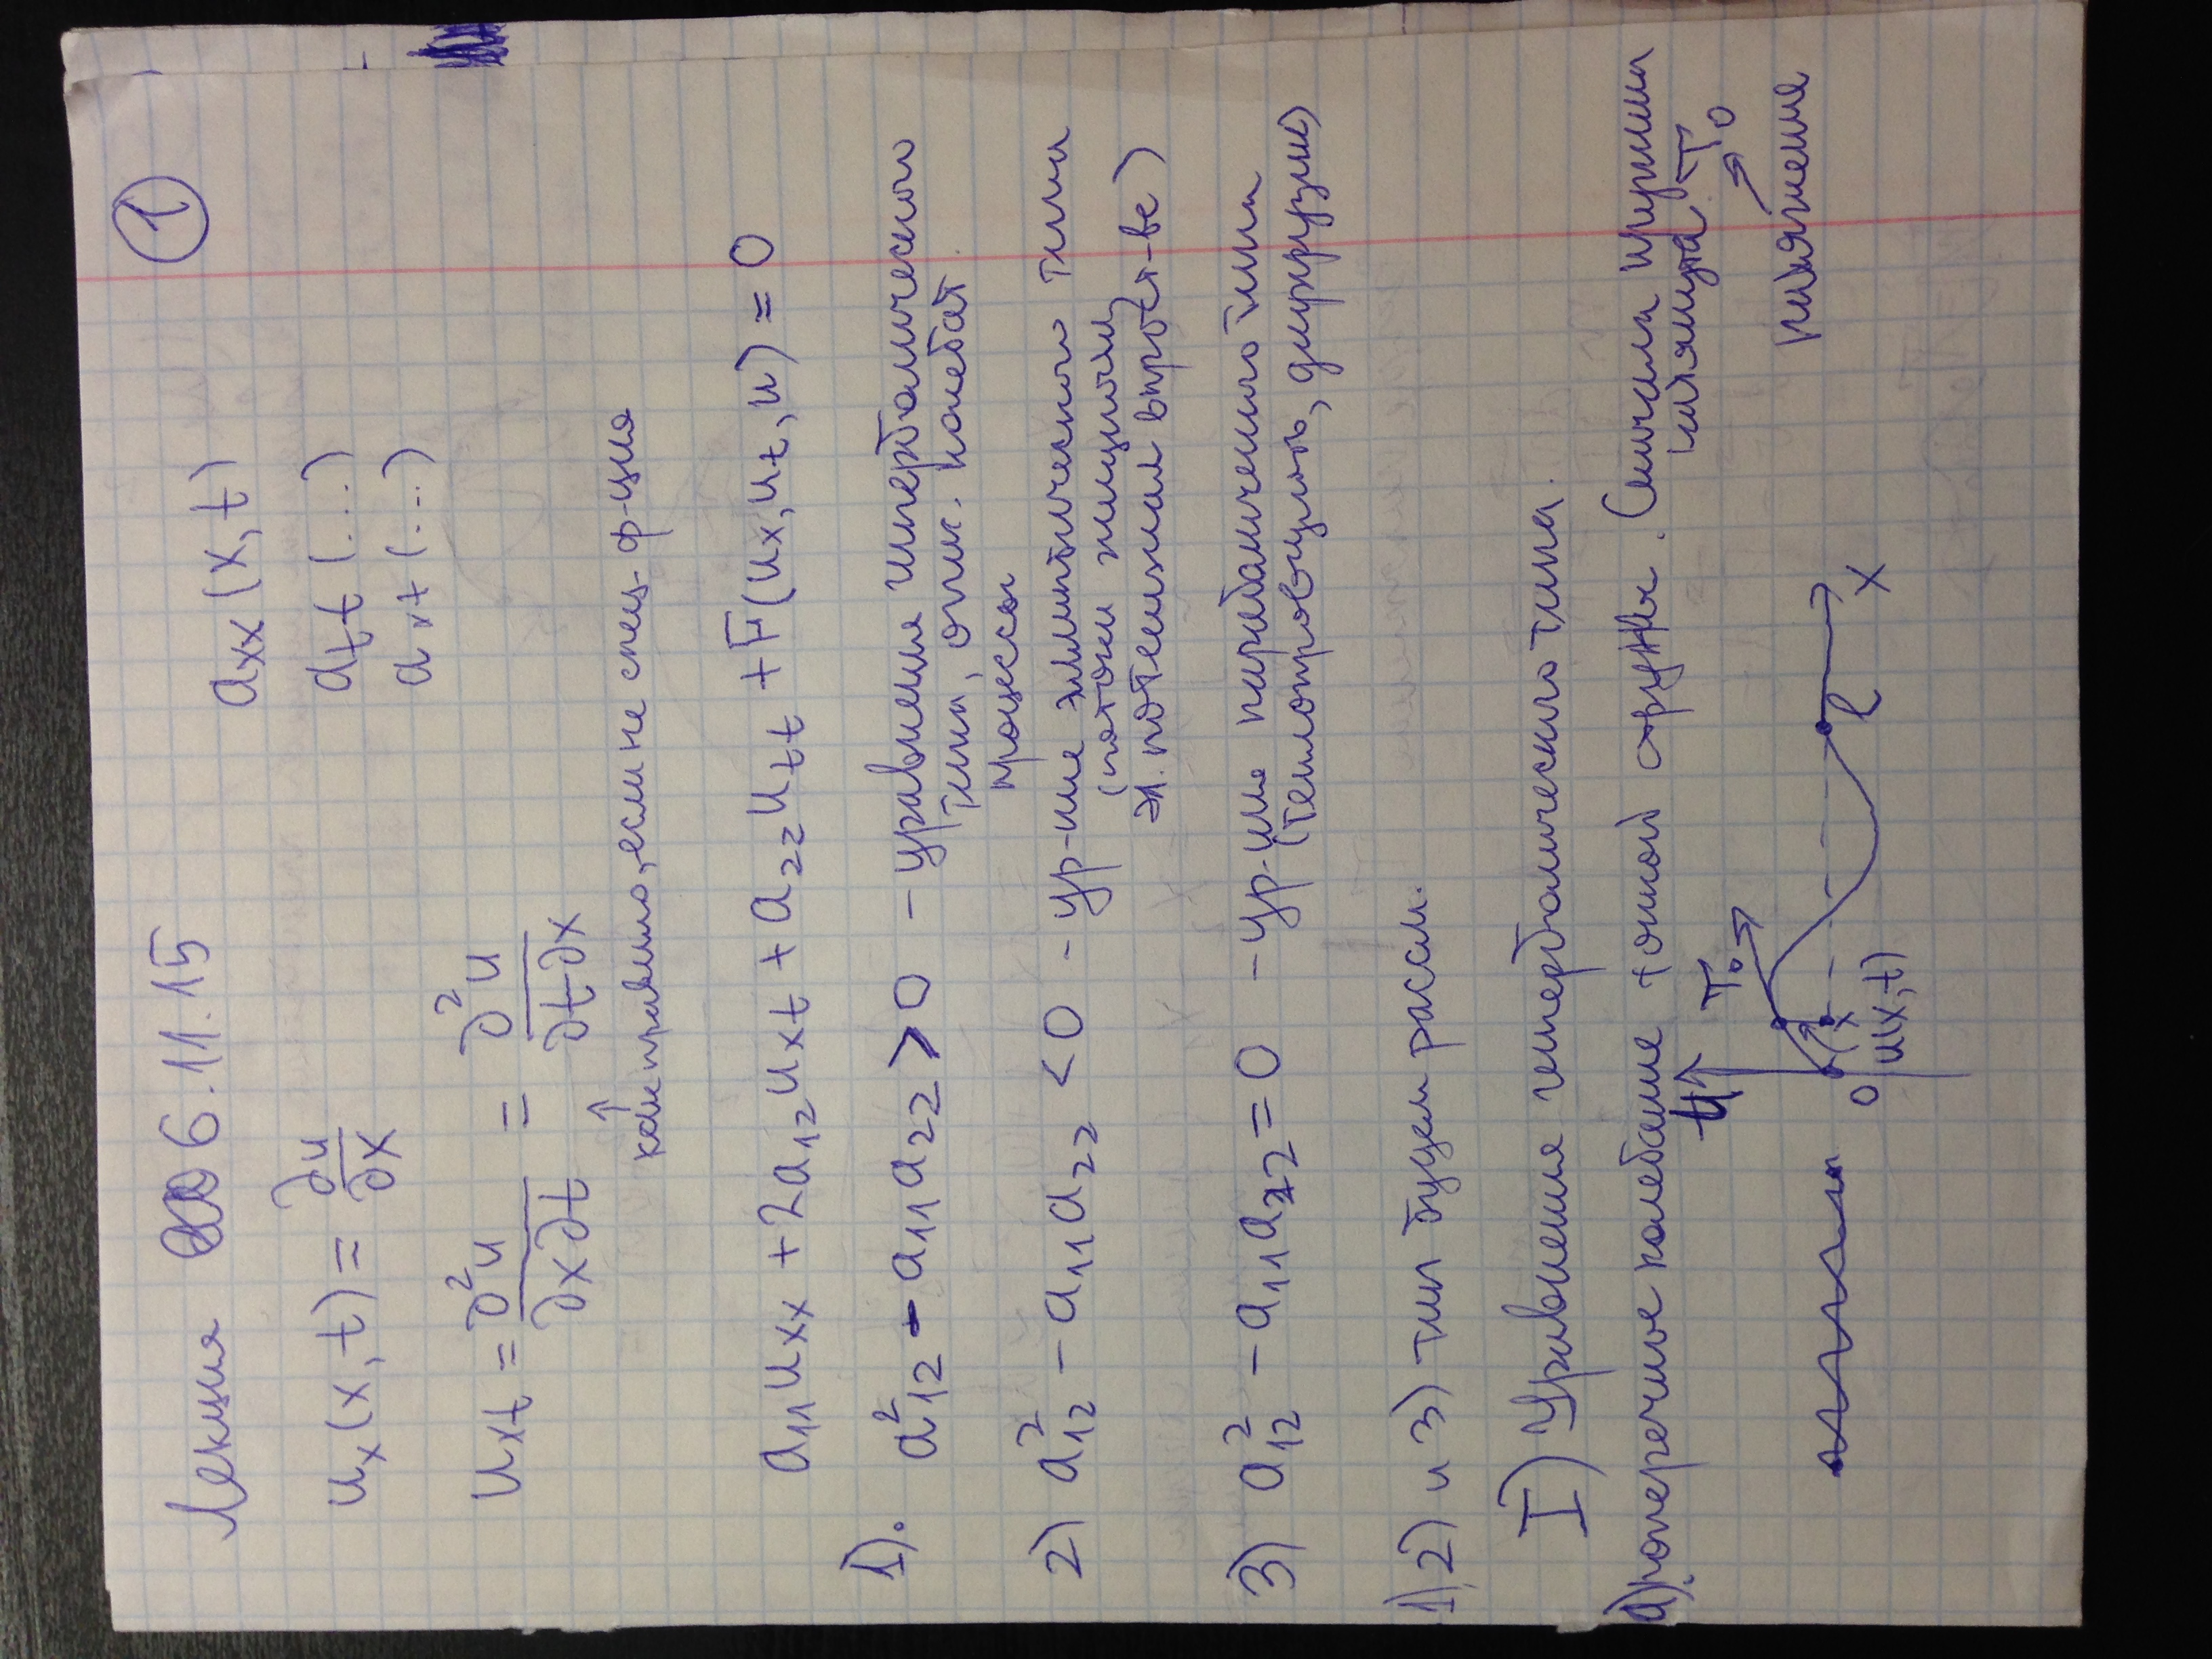 ①
Лекция 06.11.15
a_xx (x,t)
u_x(x,t) = ∂u/∂x
a_tt (...)
a_xt (...)
u_xt = ∂²u/∂x∂t = ∂²u/∂t∂x
↑
как правило, если не спец. ф-ция
a₁₁u_xx + 2a₁₂u_xt + a₂₂u_tt + F(u_x, u_t, u) = 0
1). a₁₂² - a₁₁a₂₂ > 0 - уравнение гиперболического
типа, опис. колебат.
процессы
2) a₁₂² - a₁₁a₂₂ < 0 - ур-ние эллиптического типа
(потоки жидкости,
эл. потенциал в прост-ве)
3) a₁₂² - a₁₁a₂₂ = 0 - ур-ние параболического типа
(теплопроводность, диффузии)
1), 2) и 3) тип будем рассм.
I) Уравнение гиперболического типа.
а) поперечное колебание тонкой струны. (сначала струна
натянута T₀
натяжение
u↑ T₀
0 x l x
u(x,t)